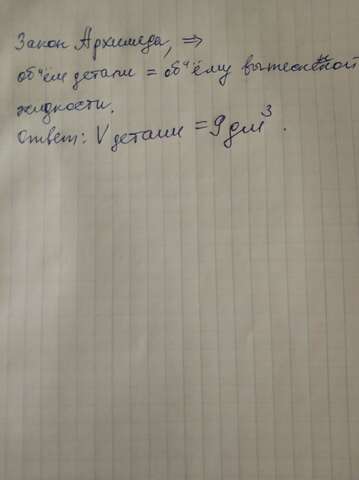 Закон Архимеда, ⇒
объём детали = объёму вытесненной
жидкости.
Ответ: V детали = 9 дм³.